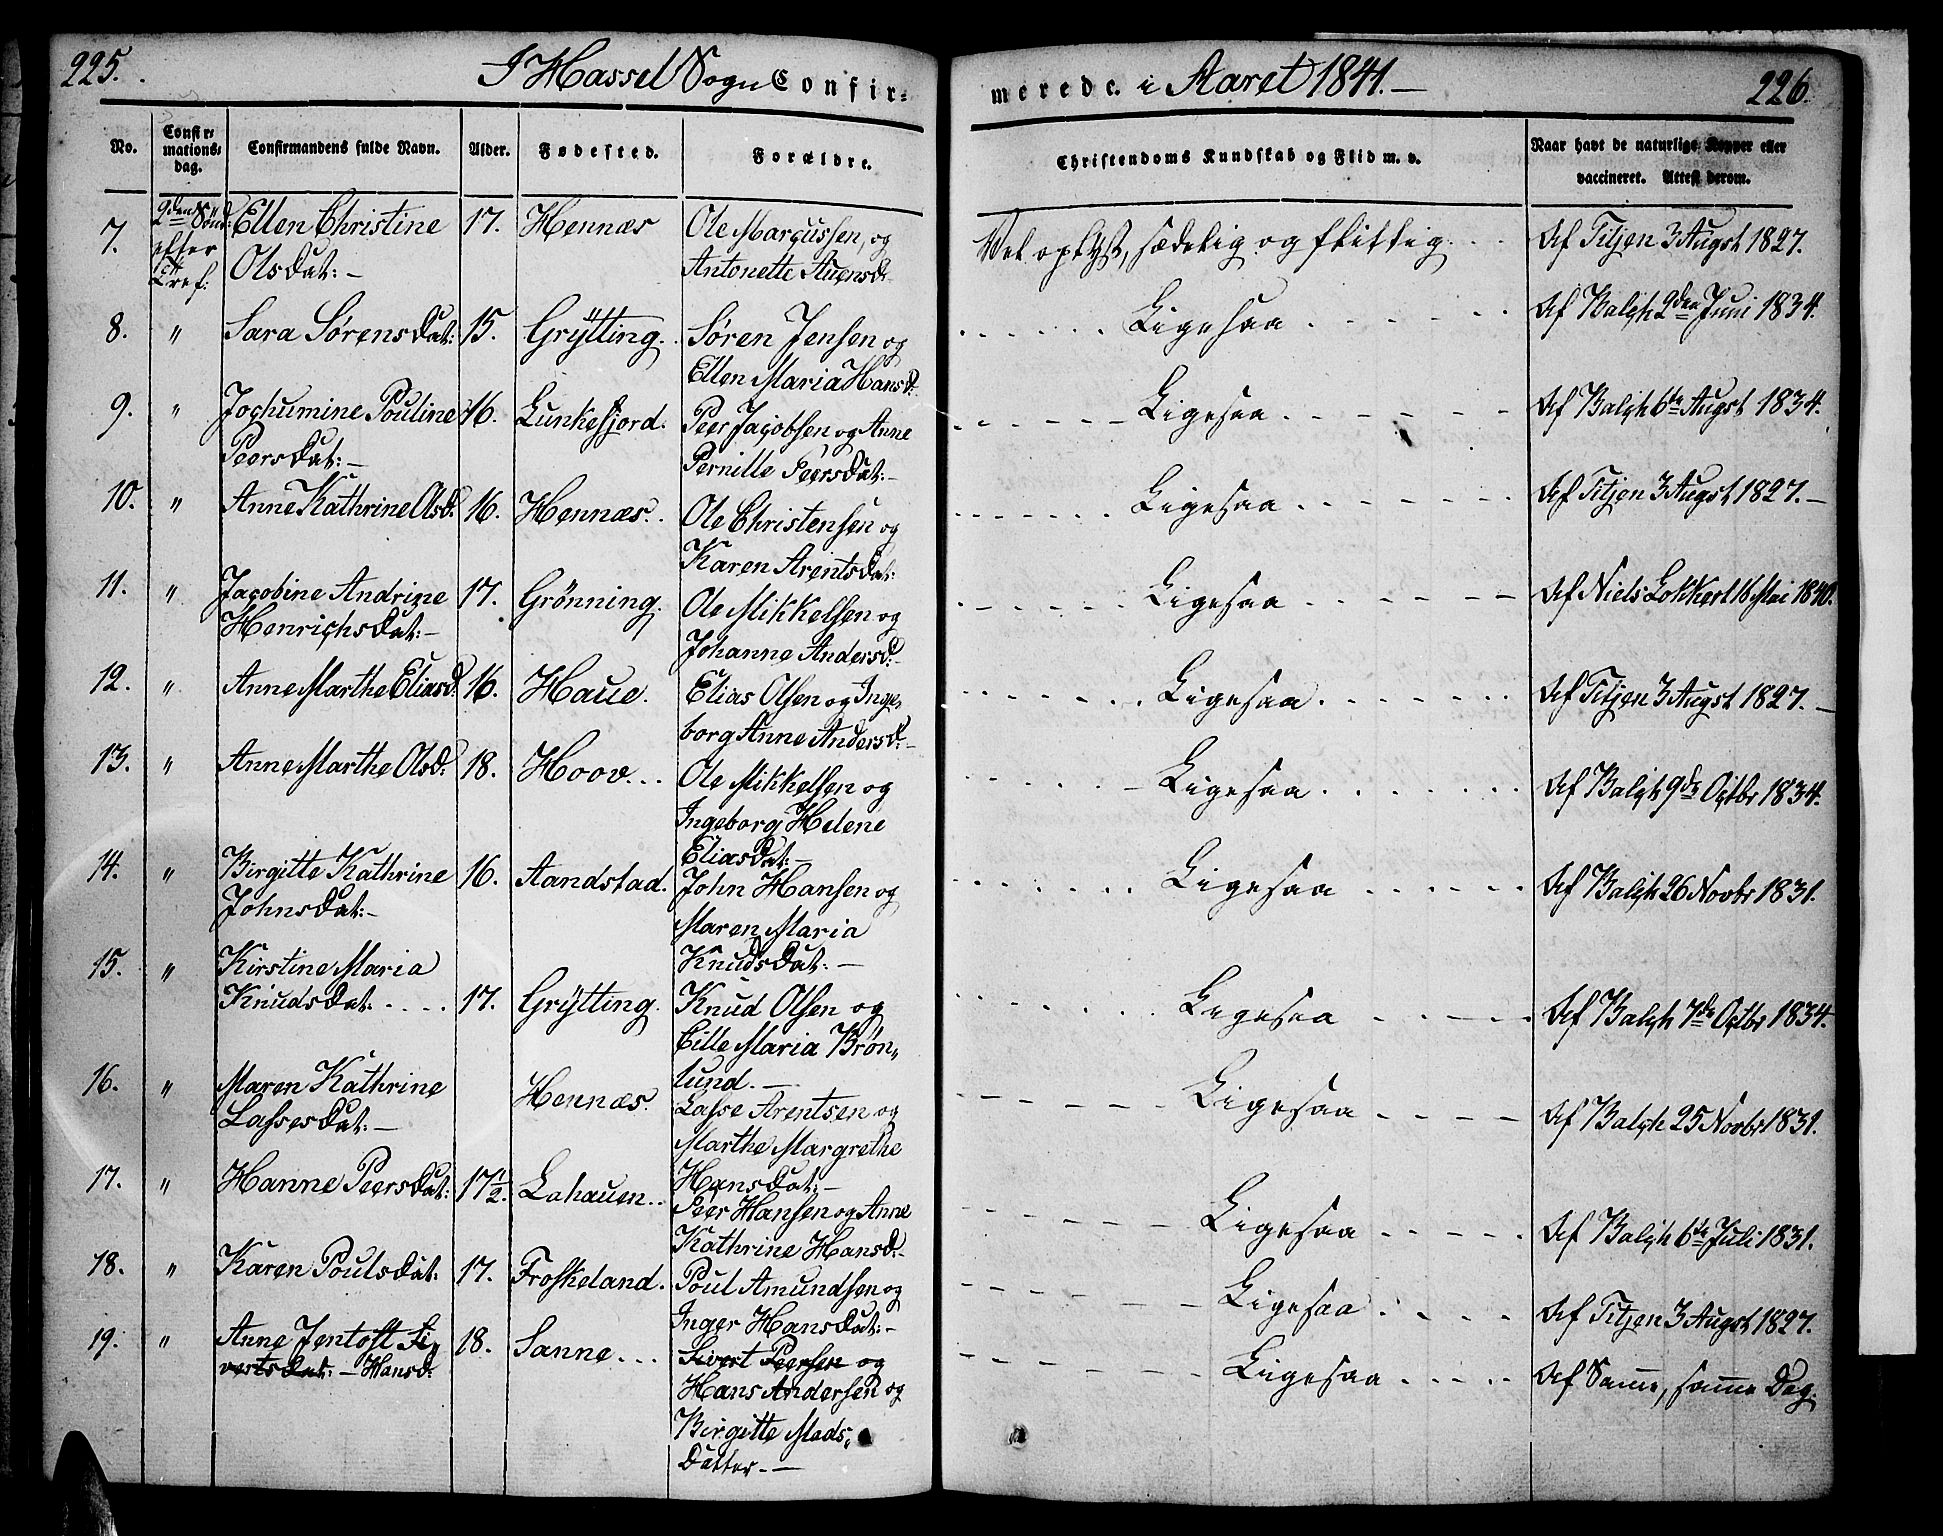 225.
I Hassel Sogn Confir-
merede. i Aaret 1841.—
226.
No.
Confir-
mations-
dag.
Confirmandens fulde Navn.
Alder.
Fødested.
Forældre.
Christendoms Kundskab og Flid m. v.
Naar havt de naturlige Kopper eller
vaccineret. Attest derom.
7. 2den Sønd: Ellen Christine 17. Hennæs Ole Marcussen, og Vel oplyst, sædelig og flittig. Af Titjen 3 Augst 1827.
efter Olsdat:— Antonette
Tref:
8. " Sara Sørensdat: 15. Grÿtting. Søren Jensen og Ligesaa Af Balch 2den Juni 1834.
Ellen Maria Hansd:
9. " Jochumine Pouline 16. Lunkefjord. Peer Jacobsen og Anne Ligesaa Af Balch 6te Augst 1834.
Peersdat:— Pernille Peersdat:—
10. " Anne Kathrine Olsd: 16. Hennæs. Ole Christensen og Ligesaa Af Titjen 3 Augst 1827.—
Karen Arentsdat:
11. " Jacobine Andrine 17. Grönning. Ole Mikkelsen og Ligesaa Af Niels Lokkert 16 Mai 1840.
Henrichsdat:— Johanne Andersd:—
12. " Anne Marthe Eliasd: 16. Haue. Elias Olsen og Inge- Ligesaa Af Titjen 3 Augst 1827.—
borg Anne Andersd:—
13. " Anne Marthe Olsd: 18. Hoov. Ole Mikkelsen og Ligesaa Af Balch 9de Octbr 1834.
Ingeborg Helene
Eliasdat:—
14. " Birgitte Kathrine 16. Aandstad. John Hansen og Ligesaa Af Balch 26 Novbr 1831.
Johnsdat:— Maren Maria
Knudsdat:—
15. " Kirstine Maria
Knudsdat: 17. Grÿtting. Knud Olsen og Ligesaa Af Balch 7de Octbr 1834.
Cille Maria Brøn„
lund.—
16. " Maren Kathrine Hennæs. Lasse Arentsen og Ligesaa Af Balch 25 Novbr 1831.
Lassesdat:— Marthe Margrethe
Hansdat:—
17. " Hanne Peersdat: 17½. Lahauen. Peer Hansen og Anne Ligesaa Af Balch 6te Juli 1831.
Kathrine Hansd:—
18. " Karen Poulsdat: 17. Froskeland. Poul Amundsen og Ligesaa Af Titjen 3 Augst 1827.
Inger Hansdat:—
19. " Anne Jentoft Si„ 18. Sanne Sivert Peersen og Ligesaa Af Samme, samme Dag.
vertsdat:— Hansd: Hans Andersen og
Birgitte Mads„
Datter.—